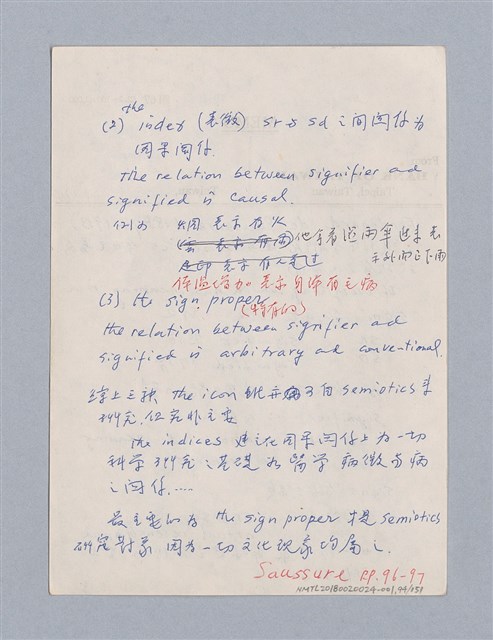 the
(2) index (表徵) sr 與 sd 之間関係為
因果関係.
The relation between signifier and
signified is causal.
例如 烟 表示有火
(雲 表示有雨) 他拿着溼雨傘進來表
示外面已下雨
足印 表示有人走过
体温增加 表示身体有毛病
(3) the sign proper
(特有的)
the relation between signifier and
signified is arbitrary and conventional.
綜上三種 the icon 雖亦可由 semiotics 來
研究, 但究非主要
the indices 建立在因果関係上為一切
科学研究之基礎 如醫学 病徵与病
之関係.....
最主要的为 the sign proper 才是 semiotics
研究对象 因为一切文化現象均属之.
Saussure pp. 96-97
NMTL20180020024-001,94/151